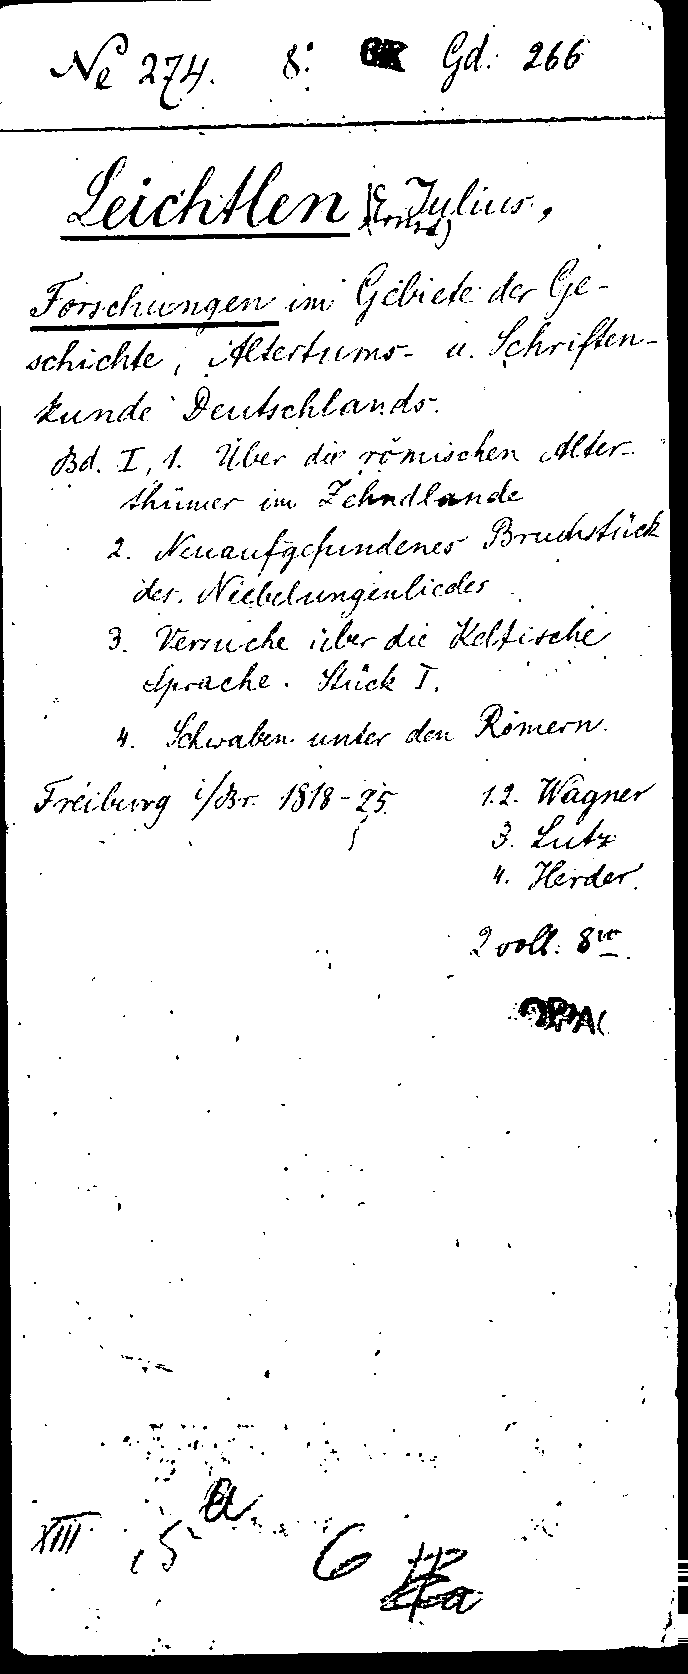 Ne 274. 8° Gd. 266
Leichtlen (Ernst) Julius,
Forschungen im Gebiete der Ge-
schichte, Altertums- u. Schriften-
kunde Deutschlands.
Bd. I, 1. Über die römischen Alter-
thümer im Zehndlande
2. Neuaufgefundenes Bruchstück
des Niebelungenliedes
3. Versuche über die Keltische
Sprache. Stück I.
4. Schwaben unter den Römern.
Freiburg i/Br. 1818-25. 1.2. Wagner
3. Lutz
4. Herder.
2 voll. 8vo
OPAC
XIII 5 a 6